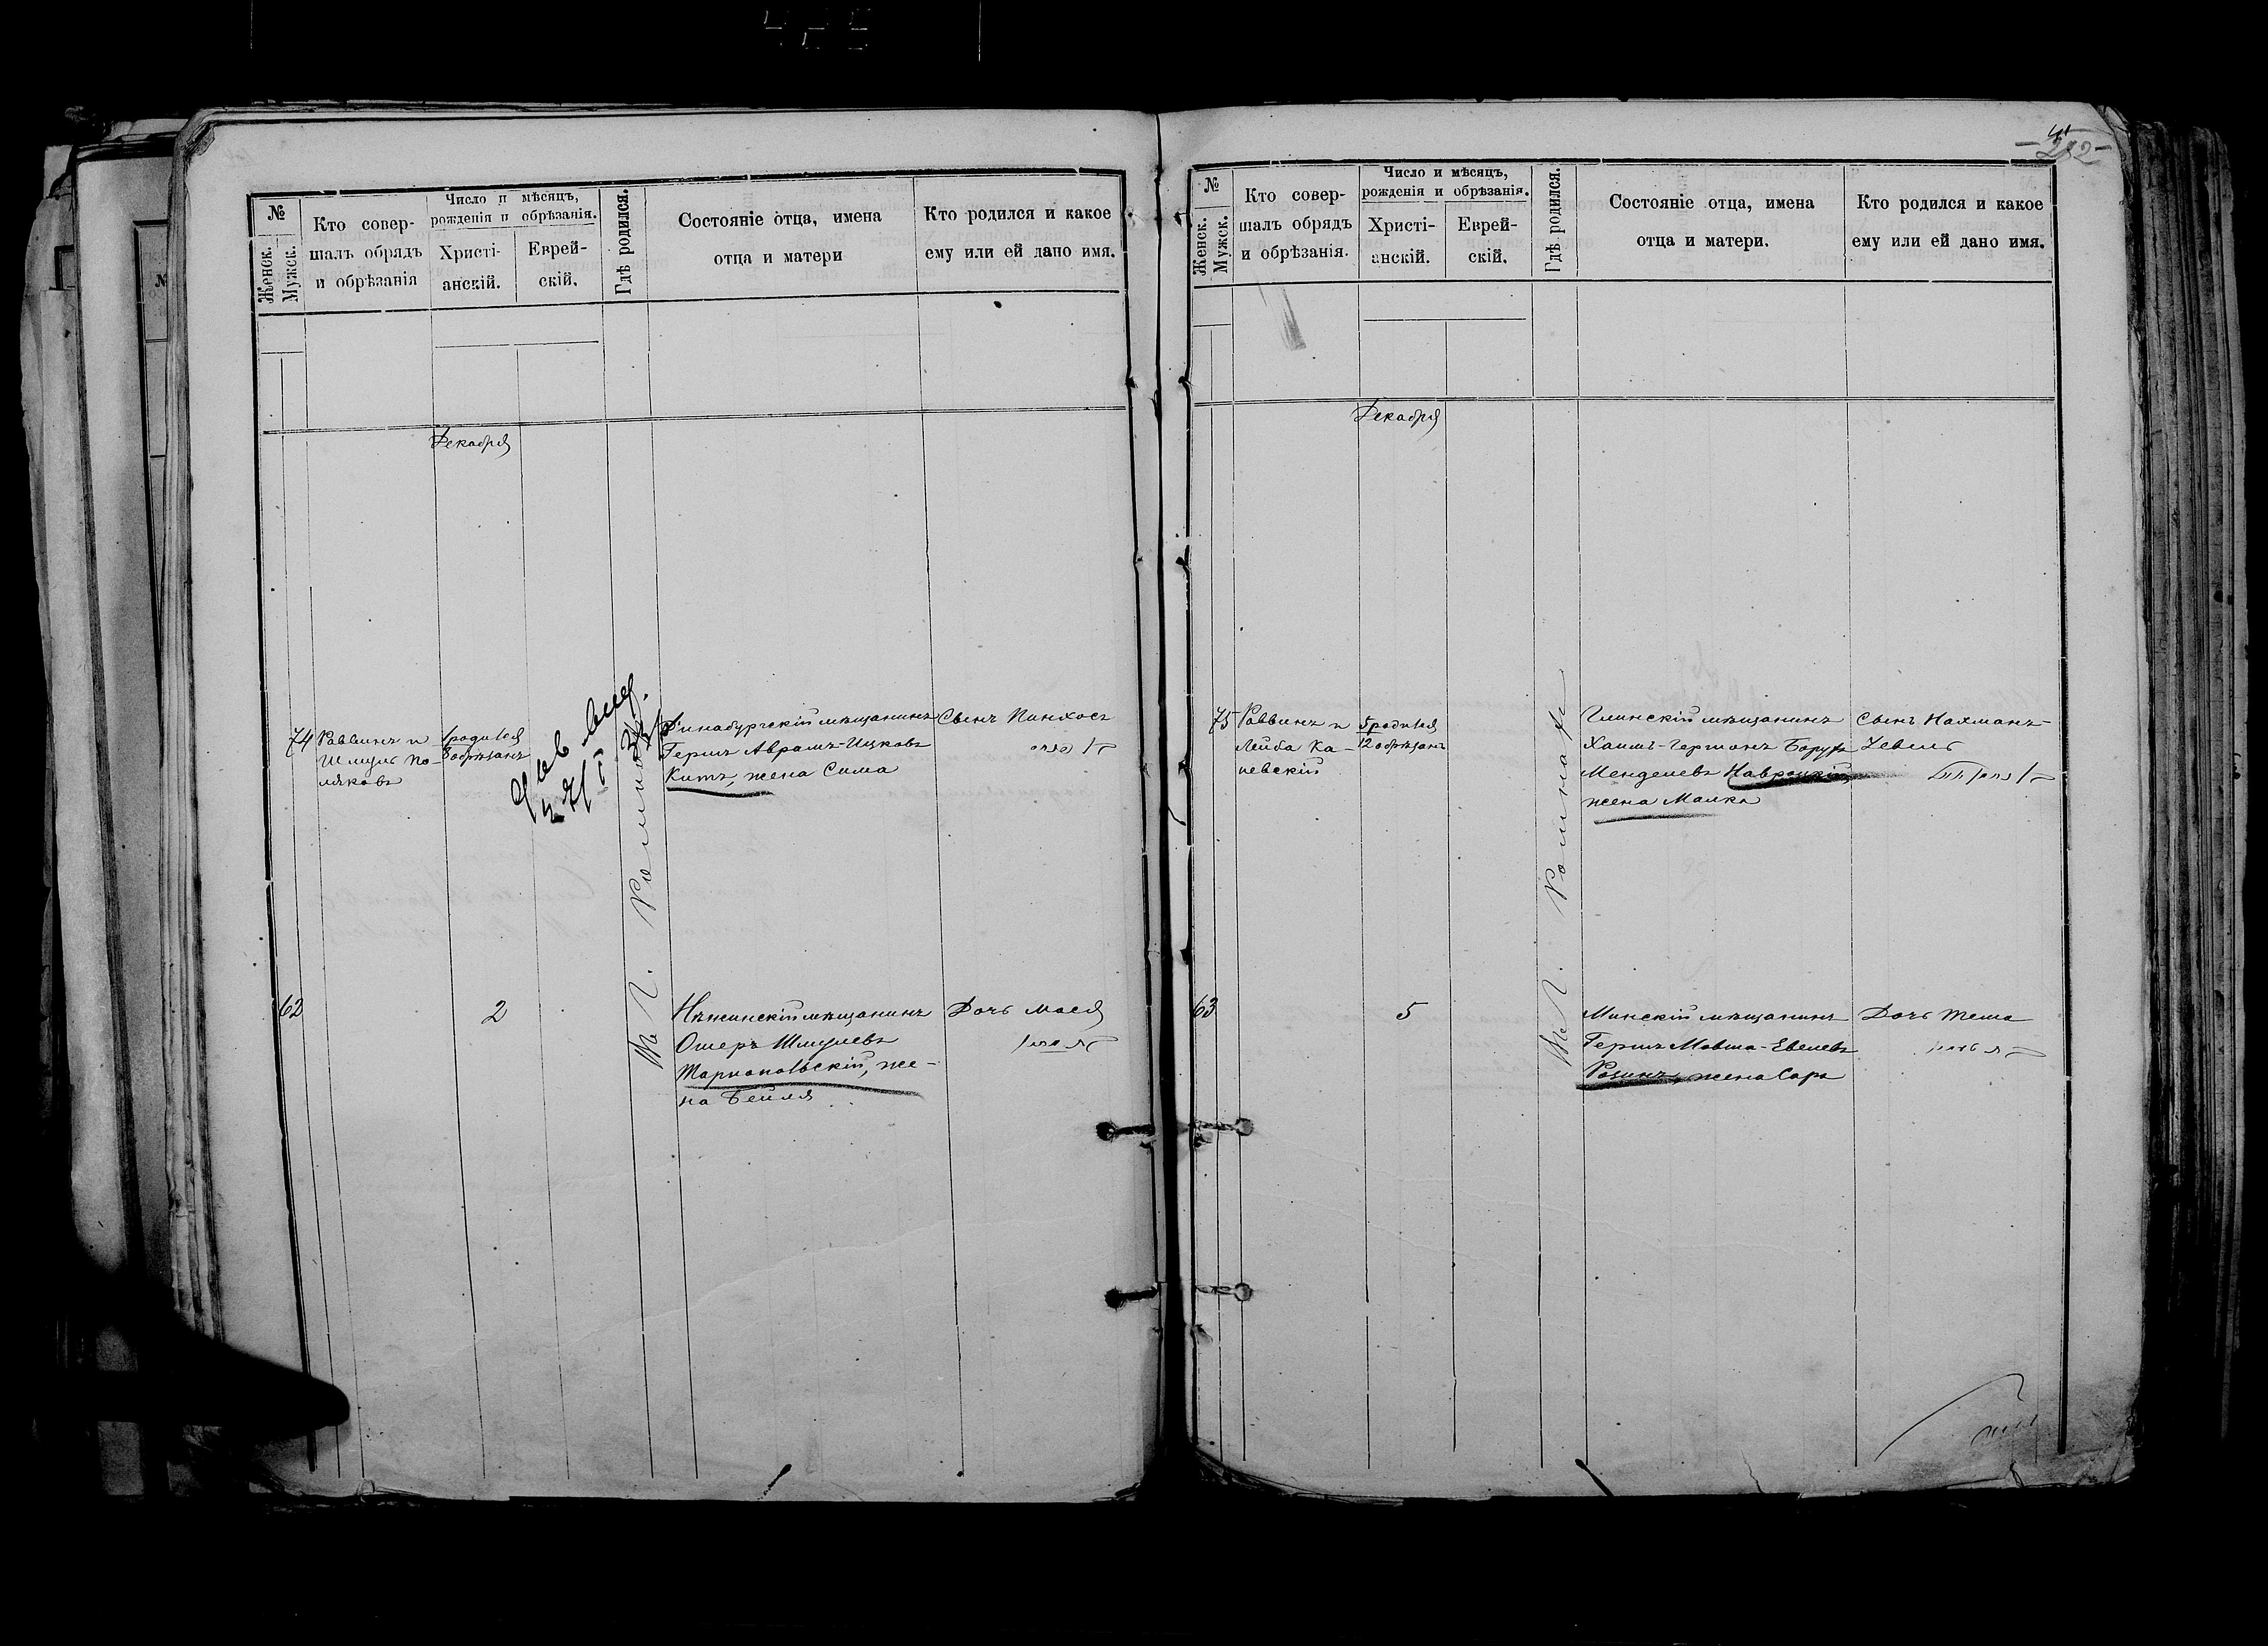 №
Женск.
Мужск.
Кто совер-
шалъ обрядъ
и обрѣзанія
Число и мѣсяцъ,
рожденія и обрѣзанія.
Христі-
анскій.
Еврей-
скій.
Гдѣ родился.
Состояніе отца, имена
отца и матери
Кто родился и какое
ему или ей дано имя.
Декабря
74
Раввинъ и
Шмуль По-
ляковъ
1 родился
8 обрѣзанъ
Въ г. Ромнахъ
Динабургскій мѣщанинъ
Гершъ Аврамъ-Ицковъ
Китъ, жена Сима
Сынъ Пинхосъ
62
2
Нѣжинскій мѣщанинъ
Ошеръ Шмулевъ
Тарнопольскій, же-
на Бейля
Дочь Мася
№
Женск.
Мужск.
Кто совер-
шалъ обрядъ
и обрѣзанія.
Число и мѣсяцъ,
рожденія и обрѣзанія.
Христі-
анскій.
Еврей-
скій.
Гдѣ родился.
Состояніе отца, имена
отца и матери.
Кто родился и какое
ему или ей дано имя.
Декабря
75
Раввинъ и
Лейба Ка-
невскій
5 родился
12 обрѣзанъ
Въ г. Ромнахъ
Глинскій мѣщанинъ
Хаимъ-Гершонъ Борухъ
Менделевъ Навроцкій,
жена Малка
Сынъ Нахманъ-
Зевель
63
5
Минскій мѣщанинъ
Гершъ Мовша-Евелевъ
Розинъ, жена Сора
Дочь Тема